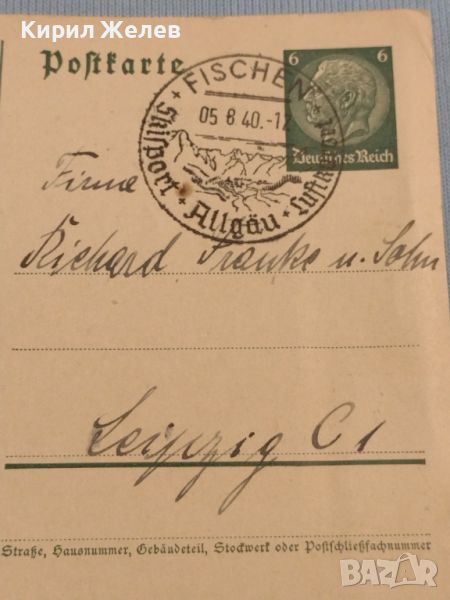 Кирил Желев
Postkarte
6 6
Deutsches Reich
FISCHEN
05 8 40.-12
Skisport Allgäu Luftkurort
Firma
Richard Franke u. Sohn
Leipzig C 1
Straße, Hausnummer, Gebäudeteil, Stockwerk oder Postschließfachnummer
BAZAR